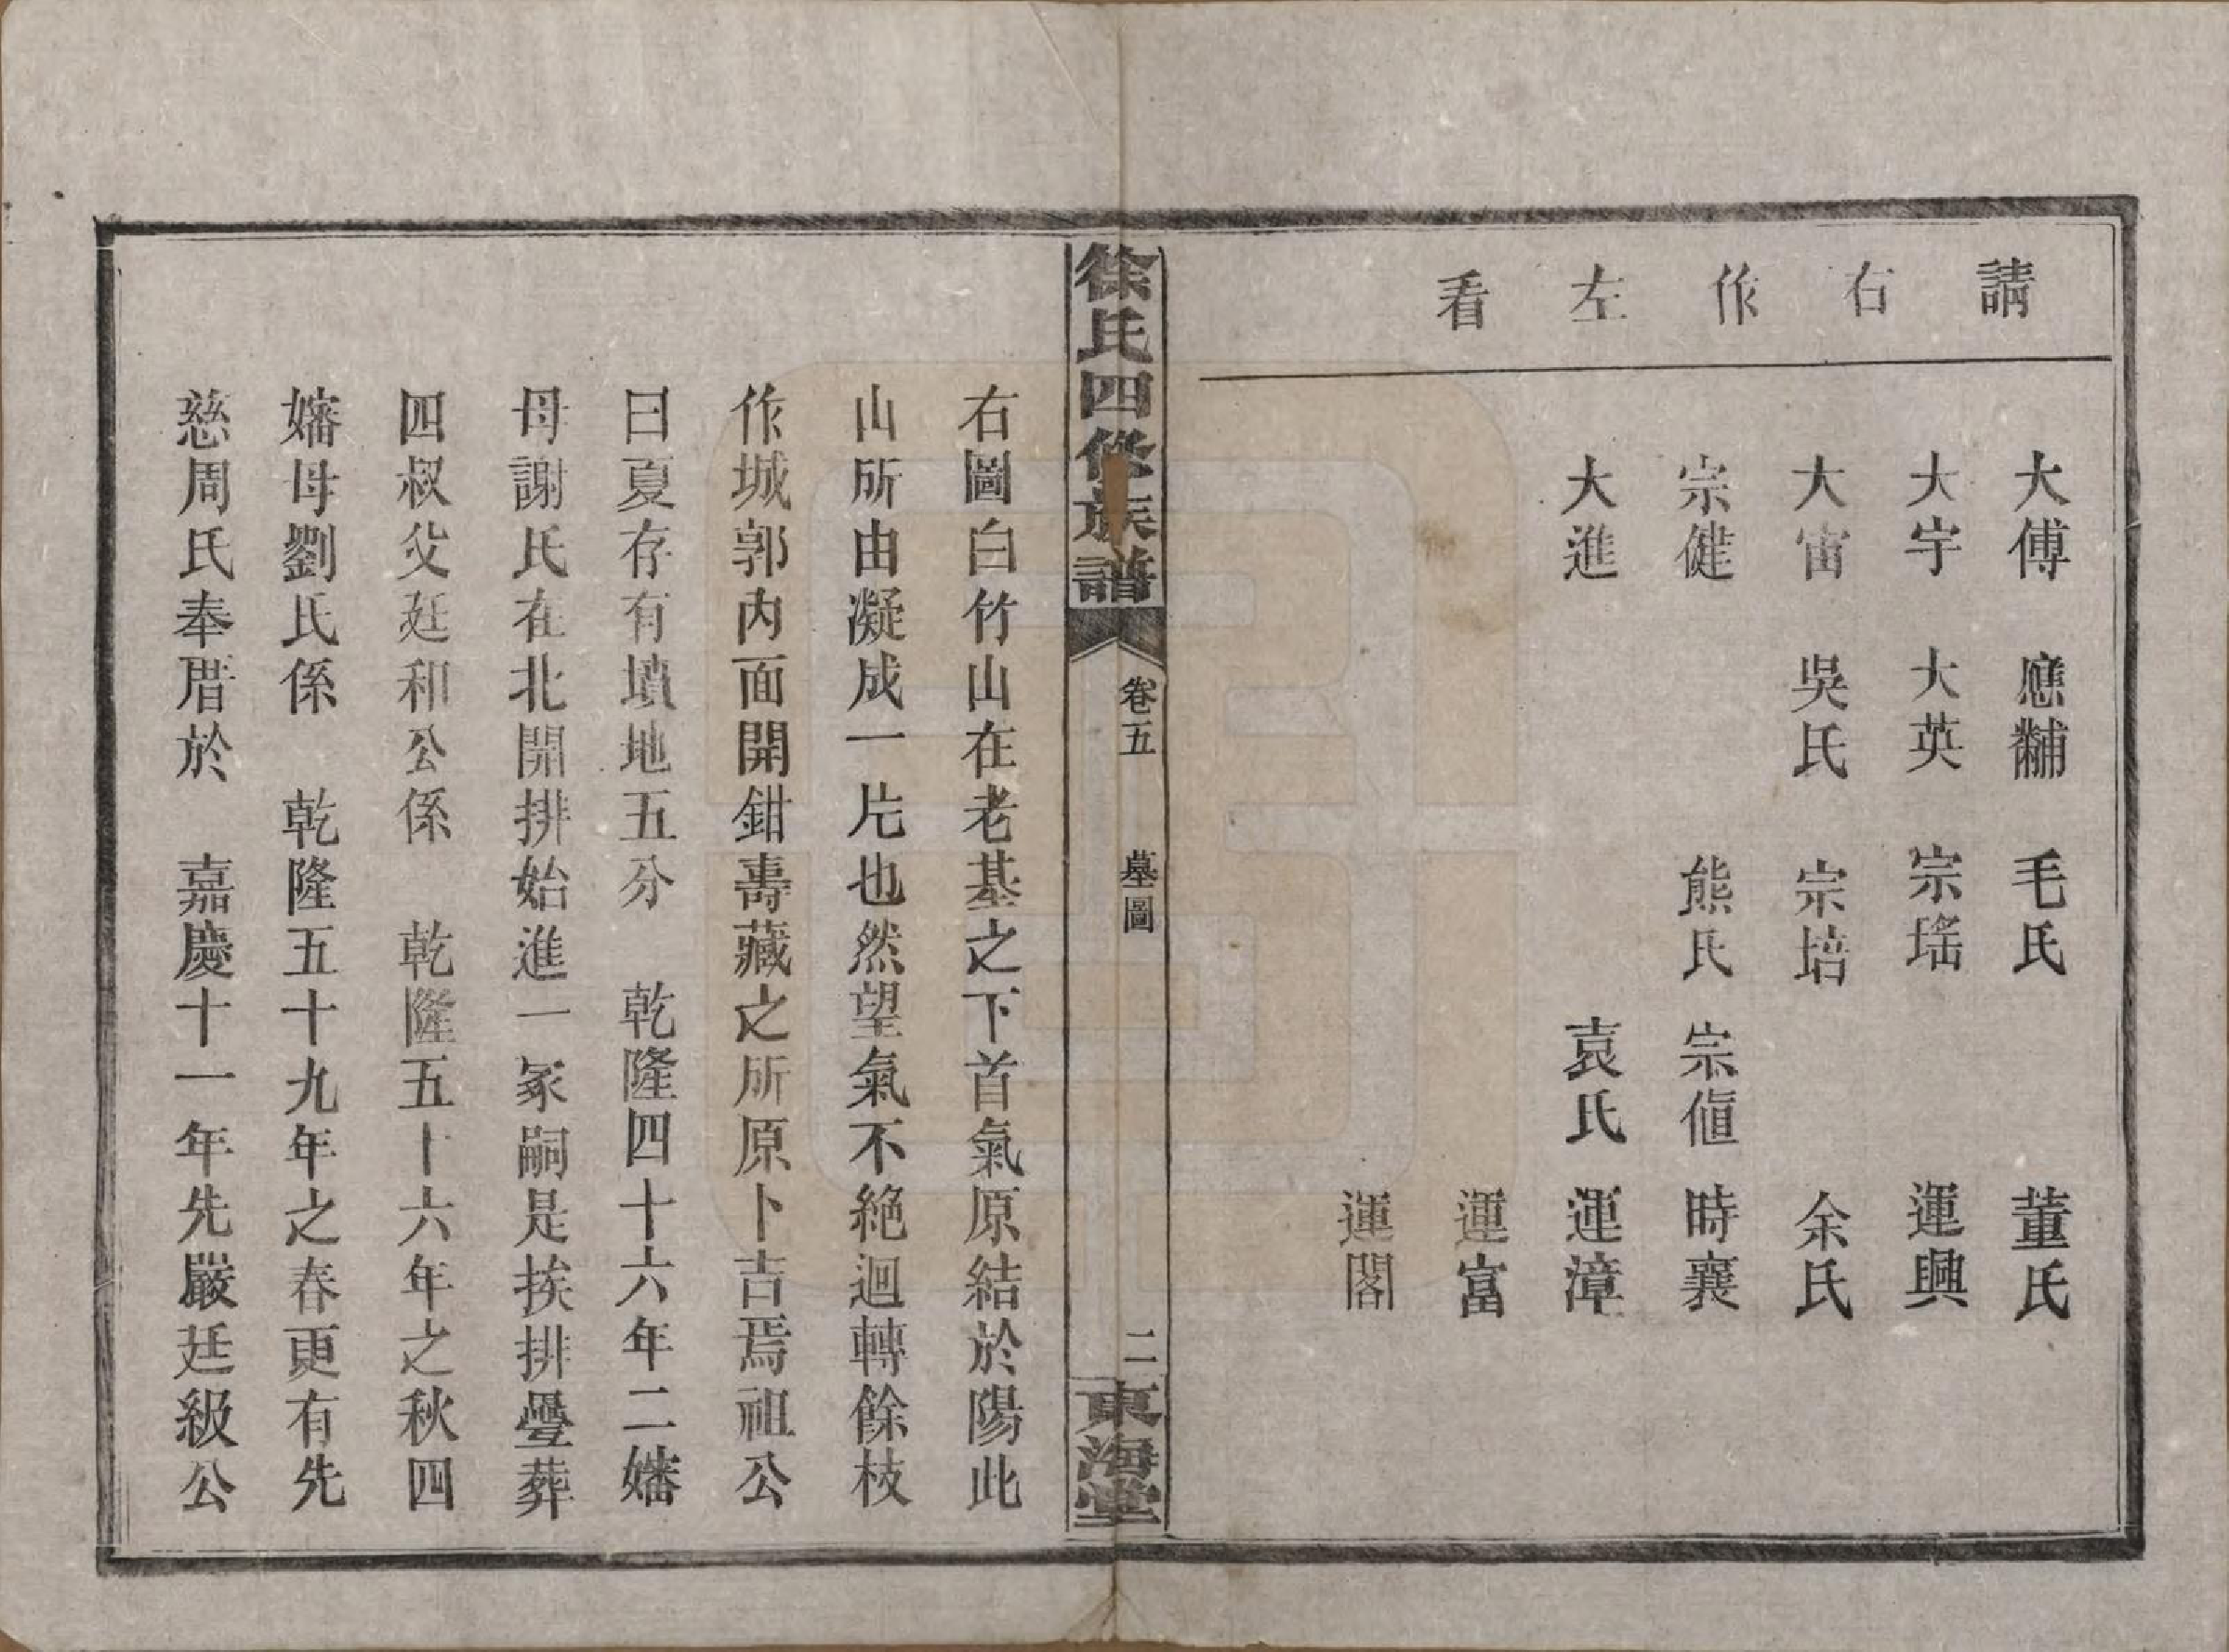 請右作左看
大傅 應黼 毛氏 董氏
大宇 大英 宗瑤 運興
大宙 吳氏 宗培 余氏
宗健 熊氏 宗偱 時襄
大進 袁氏 運漳
運富
運閣
徐氏四修族譜 卷五 墓圖 二 東海堂
右圖白竹山在老基之下首氣原結於陽此
山所由凝成一片也然望氣不絕迴轉餘枝
作城郭內面開鉗壽藏之所原卜吉焉祖公
曰夏存有墳地五分 乾隆四十六年二嬸
母謝氏在北開排始進一冢嗣是挨排疊葬
四叔父廷和公係 乾隆五十六年之秋四
嬸母劉氏係 乾隆五十九年之春更有先
慈周氏奉厝於 嘉慶十一年先嚴廷級公